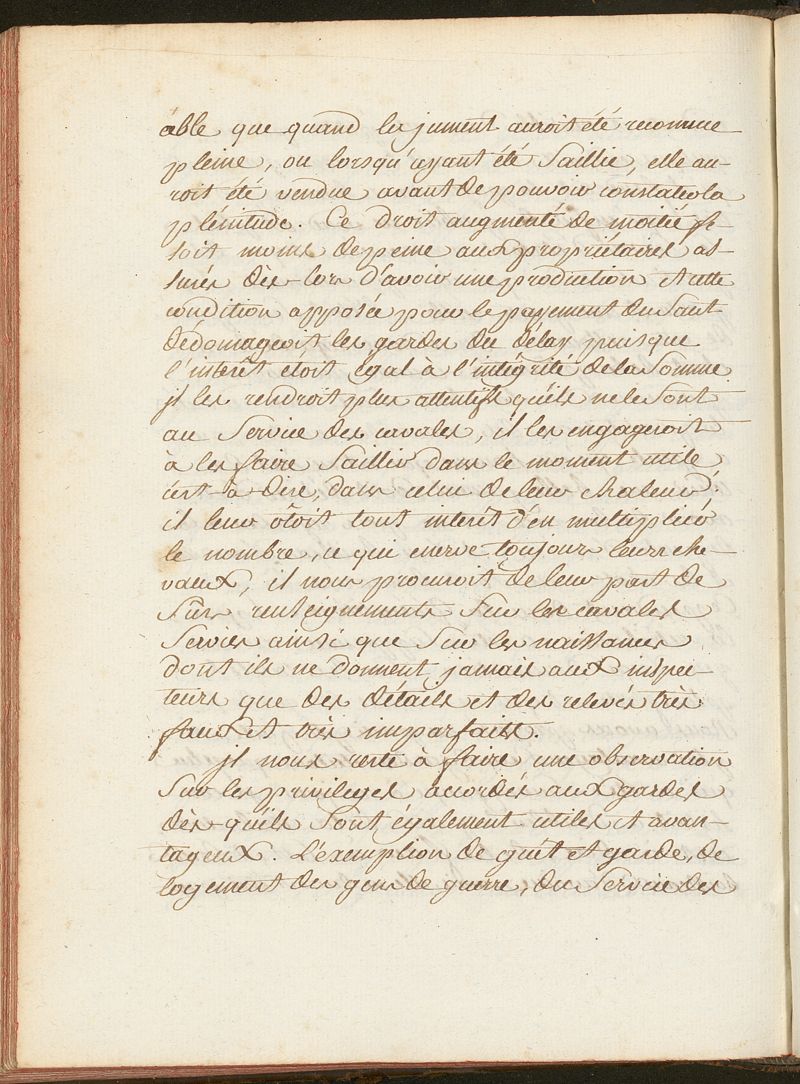 able que quand la jument auroit été reconnue
pleine, ou lorsqu'ayant été Saillie, elle au-
roit été vendue avant de pouvoir constater la
plenitude. Ce droit augmenté de moitié fe
soit moins de peine aux propriétaires as-
surés dès-lors d'avoir une production et cette
condition apposée pour le payement du Saut
dédomageoit les gardes du délay puisque
l'interêt étoit égal à l'intégrité de la Somme.
jl les rendroit plus attentifs qu'ils ne le Sont
au Service des cavales, il les engageroit
à les faire Saillir dans le moment utile
c'est-à-dire, dans celui de leur chaleur.
il leur ôtoit tout interêt d'en multiplier
le nombre, ce qui enerve toujours leurs che-
vaux, il nous procuroit de leur part de
Sûrs renseignements Sur les cavales
Servies ainsi que Sur les naissances
dont ils ne donnent jamais aux inspec-
teurs que des détails et des relevés très
faux et très imparfaits.
jl nous reste à faire une observation
Sur les privileges acordés aux gardes
dès-qu'ils Sont également utiles et avan-
tageux. L'exemption de guêt et garde, de
logement des gens de guerre, du Service des